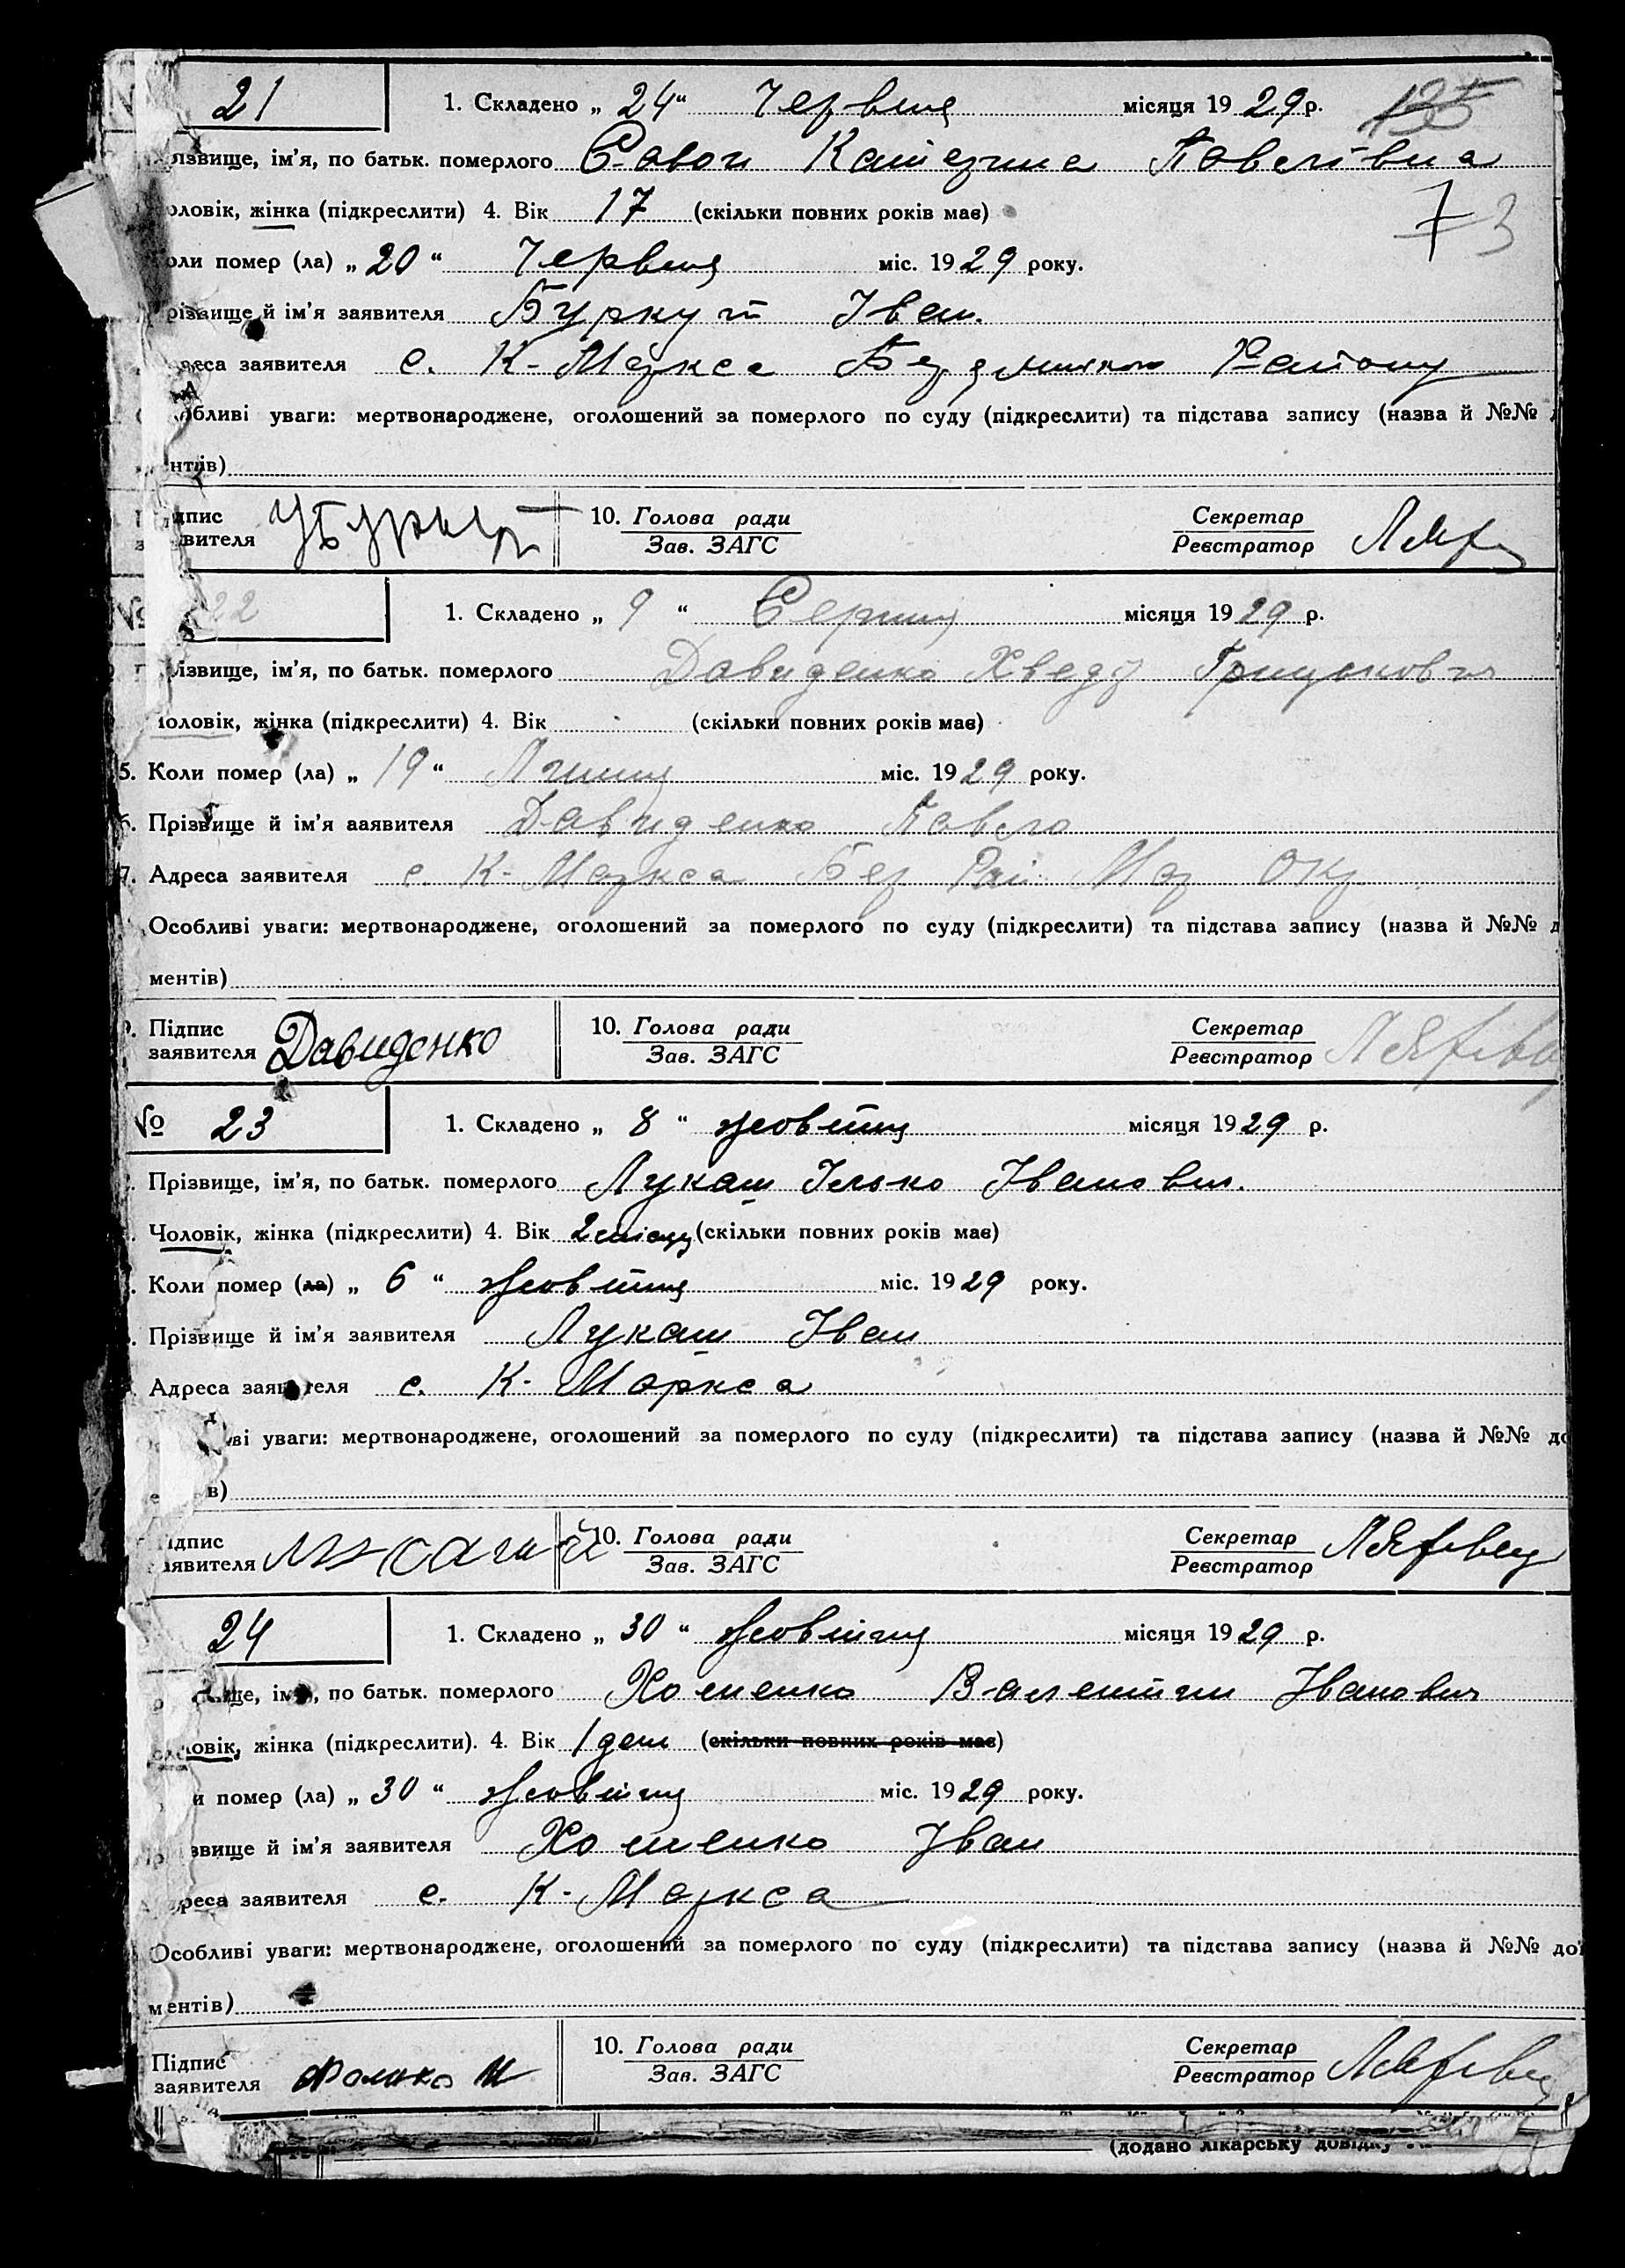 21 1. Складено „ 24 “ Червня місяця 1929 р. 135
ізвище, ім’я, по батьк. померлого Савон Катерина Павлівна
оловік, жінка (підкреслити) 4. Вік 17 (скільки повних років має) 73
оли помер (ла) „ 20 “ Червня міс. 1929 року.
різвище й ім’я заявителя Буркут Іван.
реса заявителя с. К-Маркса Району
обливі уваги: мертвонароджене, оголошений за померлого по суду (підкреслити) та підстава запису (назва й №№ д
нтів)
дпис вителя 10. Голова ради Зав. ЗАГС Секретар Реєстратор
№ 22 1. Складено „ 9 “ Серпня місяця 1929 р.
ізвище, ім’я, по батьк. померлого Давиденко Хведір Грицькович
оловік, жінка (підкреслити) 4. Вік (скільки повних років має)
5. Коли помер (ла) „ 19 “ Липня міс. 1929 року.
6. Прізвище й ім’я заявителя Давиденко Павло
7. Адреса заявителя с. К-Маркса Бер Рай. Мар Окр
Особливі уваги: мертвонароджене, оголошений за померлого по суду (підкреслити) та підстава запису (назва й №№ д
ментів)
Підпис заявителя Давиденко 10. Голова ради Зав. ЗАГС Секретар Реєстратор
№ 23 1. Складено „ 8 “ жовтня місяця 1929 р.
Прізвище, ім’я, по батьк. померлого Лукаш Ілько Іванович.
Чоловік, жінка (підкреслити) 4. Вік 2 місяц (скільки повних років має)
Коли помер (ла) „ 6 “ жовтня міс. 1929 року.
Прізвище й ім’я заявителя Лукаш Іван
Адреса заявителя с. К-Маркса
ві уваги: мертвонароджене, оголошений за померлого по суду (підкреслити) та підстава запису (назва й №№ до
в)
ідпис аявителя 10. Голова ради Зав. ЗАГС Секретар Реєстратор
24 1. Складено „ 30 “ жовтня місяця 1929 р.
ще, ім’я, по батьк. померлого Хоменко Валентин Іванович
ловік, жінка (підкреслити). 4. Вік 1 день (скільки повних років має)
и помер (ла) „ 30 “ жовтня міс. 1929 року.
звище й ім’я заявителя Хоменко Іван
реса заявителя с. К-Маркса
Особливі уваги: мертвонароджене, оголошений за померлого по суду (підкреслити) та підстава запису (назва й №№ до
ментів)
Підпис заявителя 10. Голова ради Зав. ЗАГС Секретар Реєстратор
(додано лікарську довідку